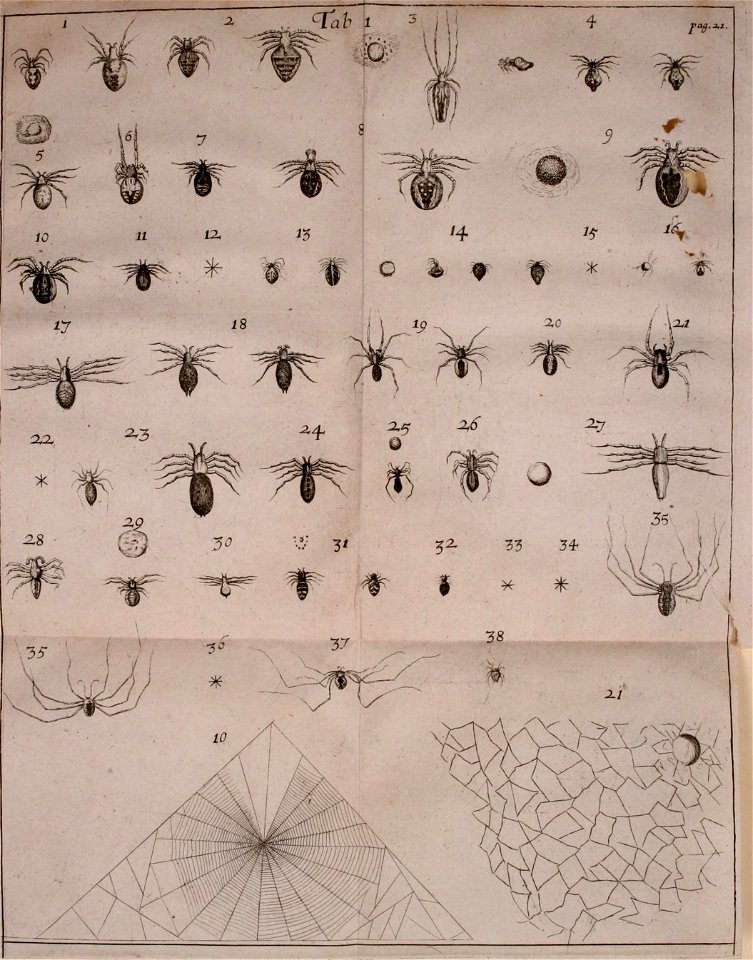 1 2 Tab 1 3 4 pag. 21.
5 6 7 8 9
10 11 12 13 14 15 16
17 18 19 20 21
22 23 24 25 26 27
28 29 30 31 32 33 34 35
35 36 37 38
21
10